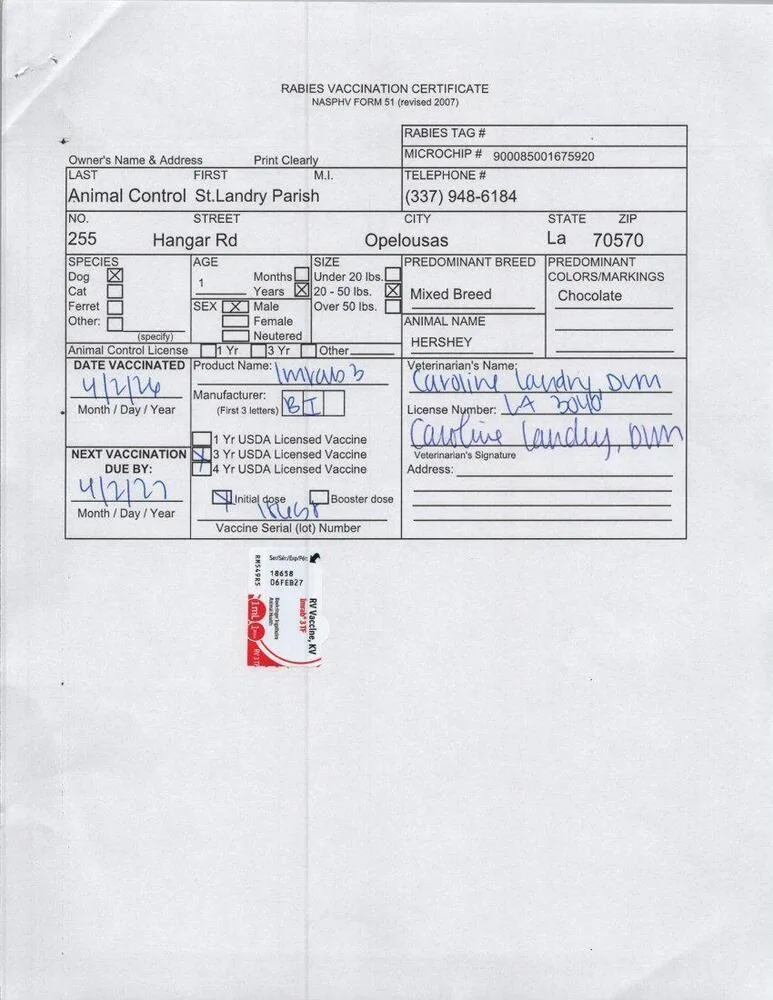 RABIES VACCINATION CERTIFICATE
NASPHV FORM 51 (revised 2007)
RABIES TAG #
MICROCHIP # 900085001675920
Owner's Name & Address Print Clearly
LAST FIRST M.I. TELEPHONE #
Animal Control St.Landry Parish (337) 948-6184
NO. STREET CITY STATE ZIP
255 Hangar Rd Opelousas La 70570
SPECIES AGE SIZE PREDOMINANT BREED PREDOMINANT
Dog Months Under 20 lbs. COLORS/MARKINGS
Cat 1 Years 20 - 50 lbs. Mixed Breed Chocolate
Ferret SEX Male Over 50 lbs.
Other: Female ANIMAL NAME
(specify) Neutered HERSHEY
Animal Control License 1 Yr 3 Yr Other
DATE VACCINATED Product Name: Imrab 3 Veterinarian's Name:
4/2/26 Caroline Landry, DVM
Manufacturer:
Month / Day / Year (First 3 letters) BI License Number: LA 3040
1 Yr USDA Licensed Vaccine Caroline Landry, DVM
NEXT VACCINATION 3 Yr USDA Licensed Vaccine Veterinarian's Signature
DUE BY: 4 Yr USDA Licensed Vaccine Address:
4/2/27 Initial dose Booster dose
18658
Month / Day / Year
Vaccine Serial (lot) Number
Ser/Sér/Exp/Pér:
18658
06FEB27
RM549R5
RV Vaccine, KV
Imrab® 3 TF
Boehringer Ingelheim
Animal Health
1 mL